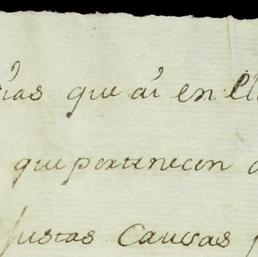 que ai en
que pertenecen
Justas Caussas